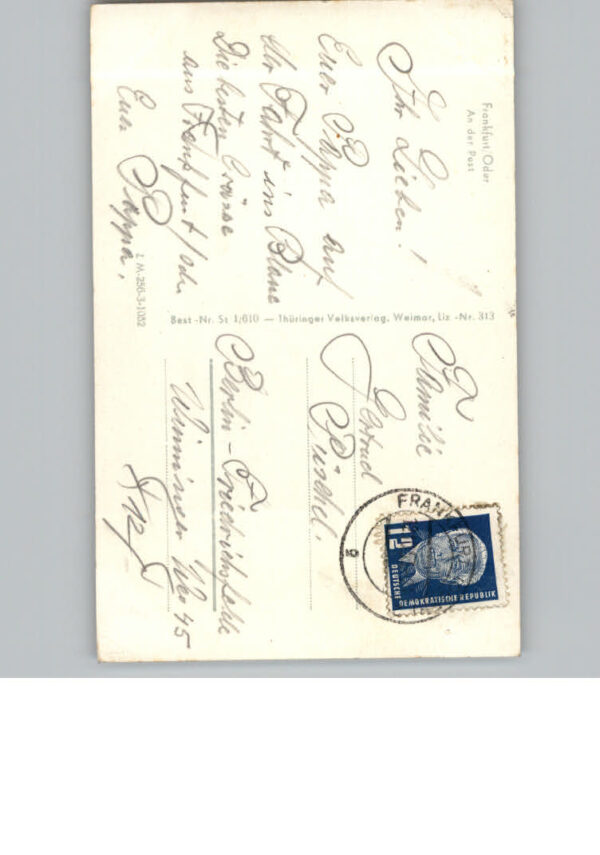 Frankfurt Oder
An der Post
Ihr Lieben!
Euer Pappa auf
der Fahrt ins Blaue
Die besten Grüsse
aus Frankfurt/Oder
Euer Pappa.
L M-256-3-1052
Best-Nr. St 1/610 — Thüringer Volksverlag, Weimar, Liz-Nr. 313
Familie
Püschel.
Berlin-Friedrichsfelde
Weg 45
FRANKFUR
12
DEUTSCHE
DEMOKRATISCHE REPUBLIK